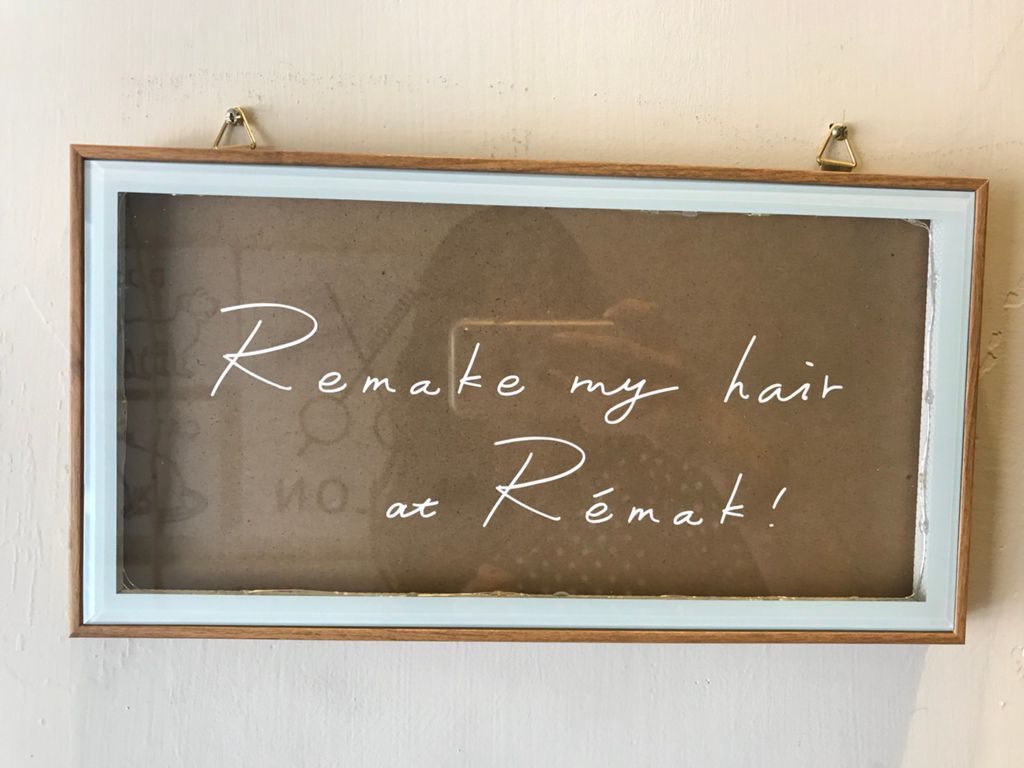 Remake my hair
at Rémak!